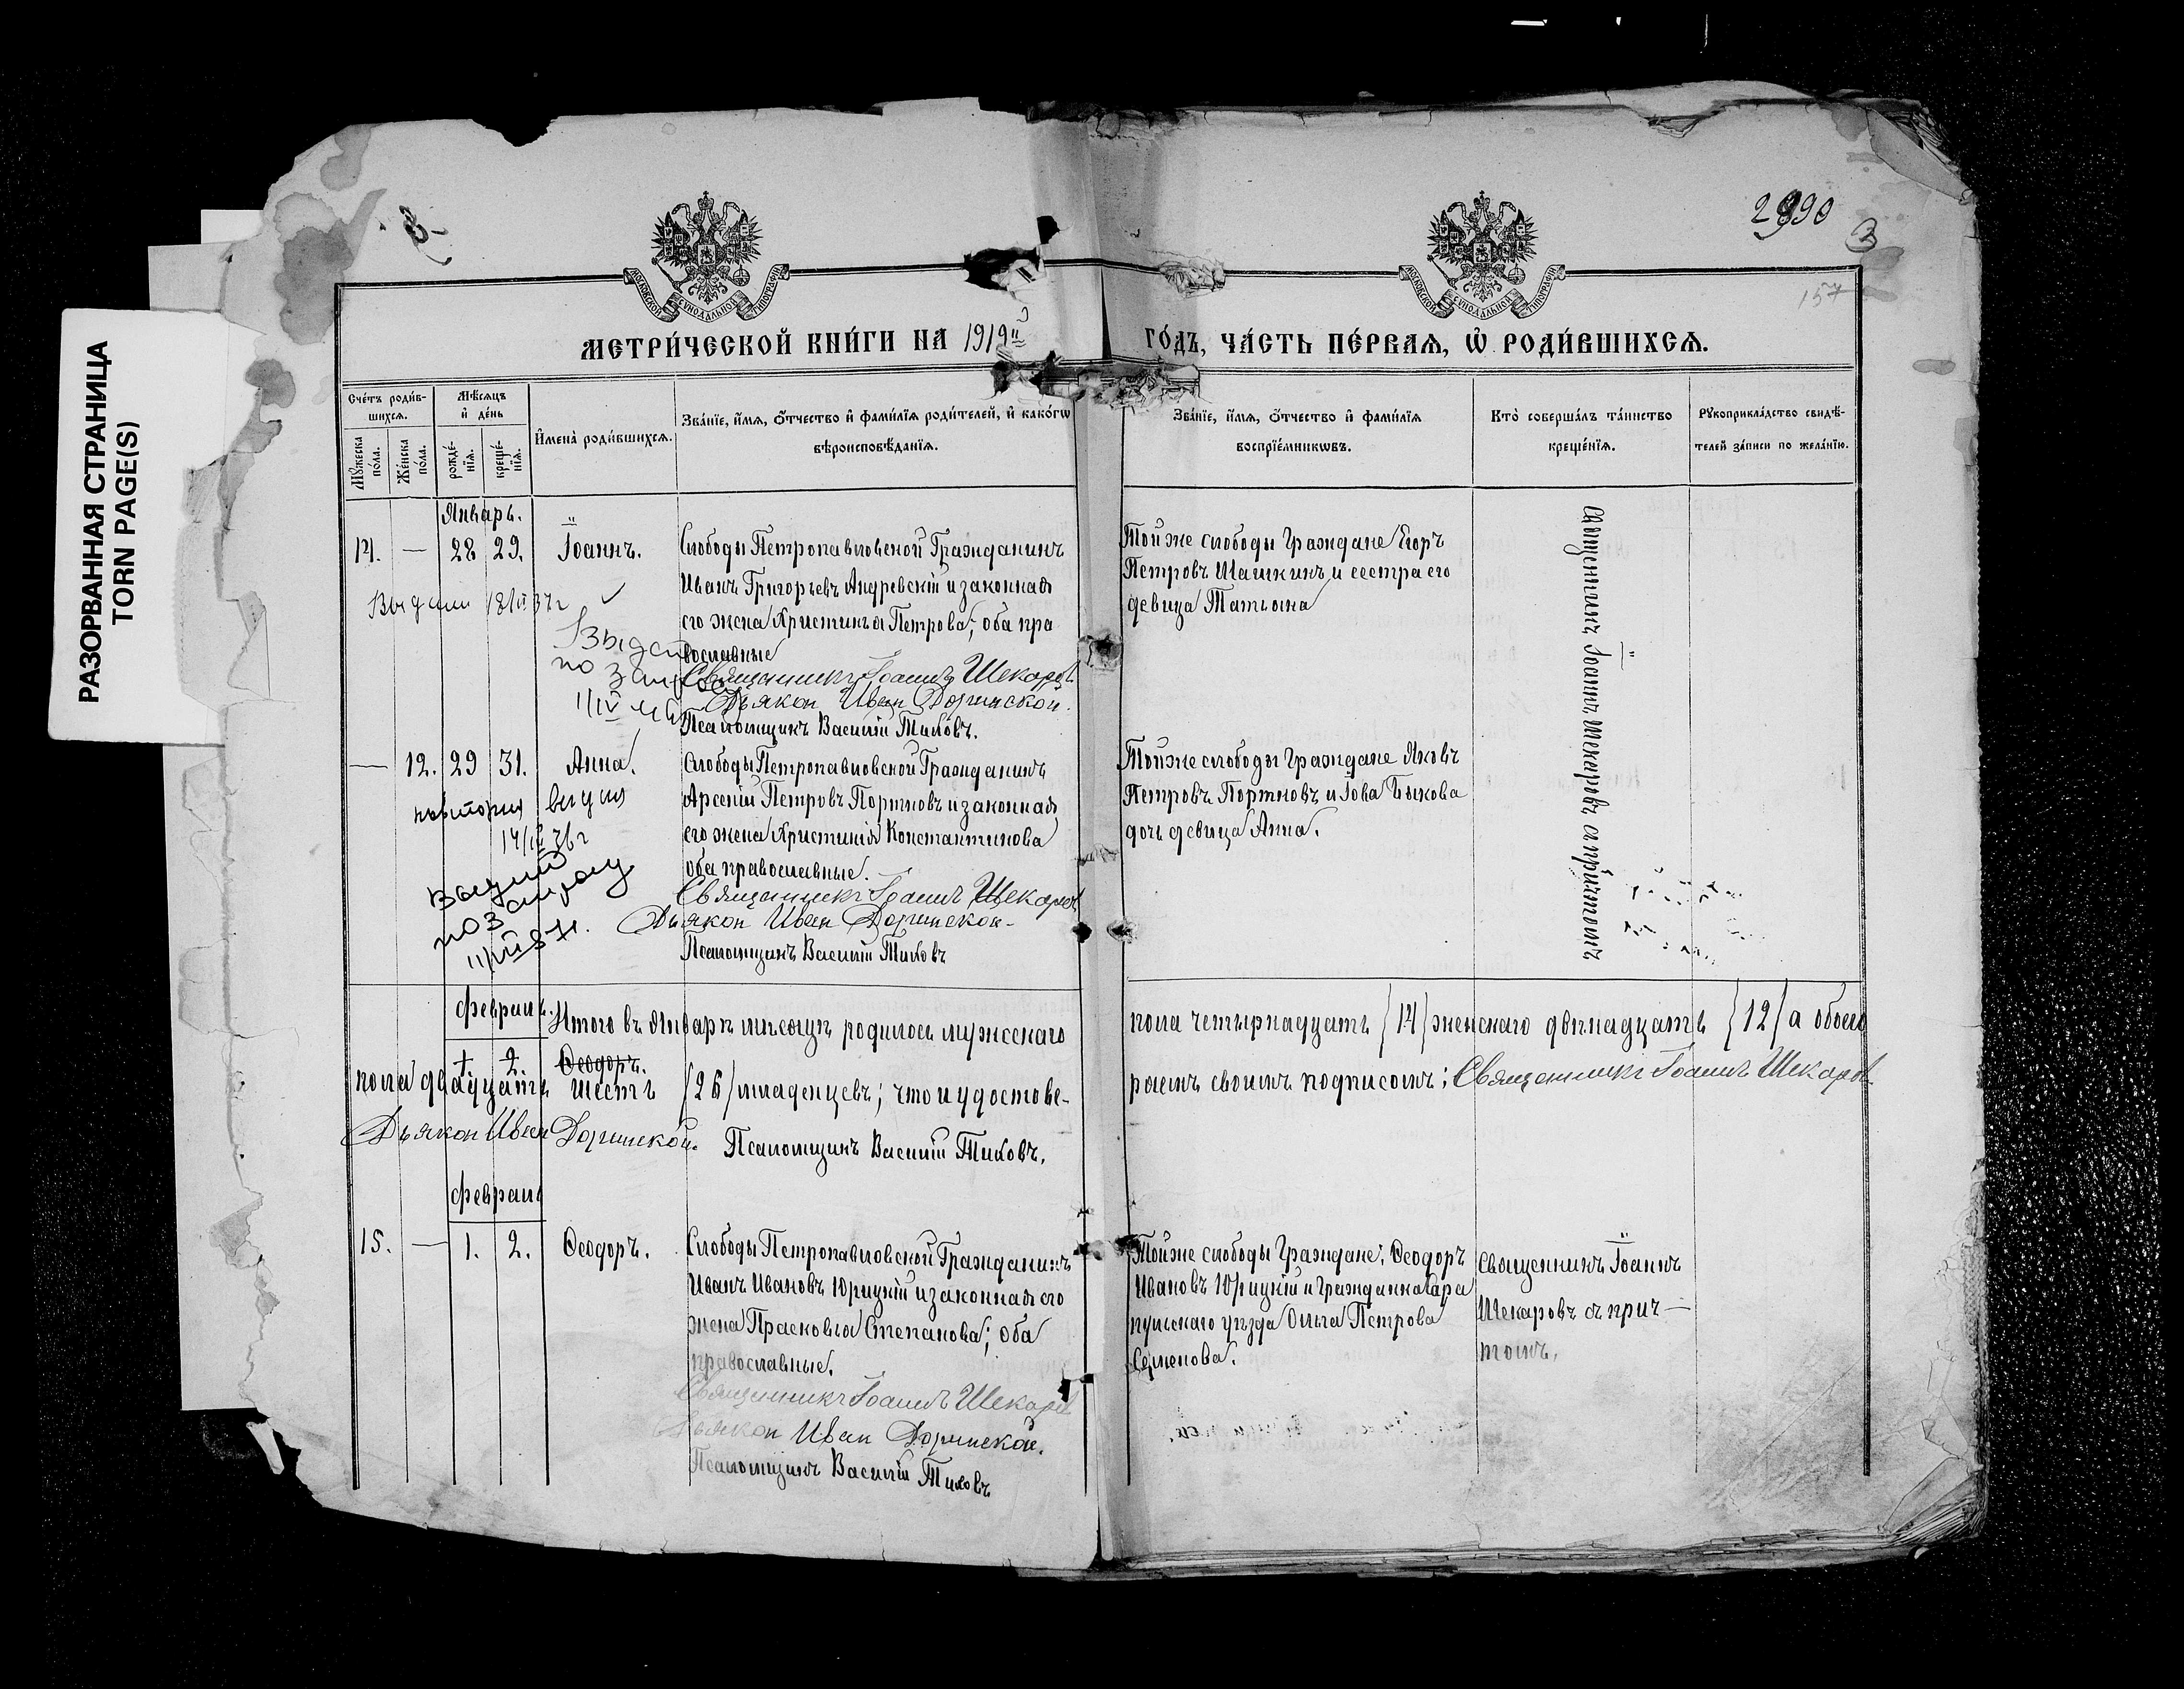 РАЗОРВАННАЯ СТРАНИЦА
TORN PAGE(S)
2890
3
157
МОСКОВСКОЙ СѴНОДАЛЬНОЙ ТИПОГРАФІИ
МОСКОВСКОЙ СѴНОДАЛЬНОЙ ТИПОГРАФІИ
МЕТРИ́ЧЕСКОЙ КНИ́ГИ НА 1919й
ГО́ДЪ, ЧА́СТЬ ПЕ́РВАѦ, Ѡ҆ РОДИ́ВШИХСѦ.
Сче́тъ роди́в-
шихсѧ.
Мѣ́сѧцъ
и҆ де́нь
Мꙋ́жеска
по́ла.
Же́нска
по́ла.
рожде́-
нїѧ.
креще́-
нїѧ.
И҆мена̀ роди́вшихсѧ.
Зва́нїе, и҆́мѧ, ѻ҆́тчество и҆ фами́лїѧ роди́телей, и҆ како́гѡ
вѣроисповѣ́данїѧ.
Зва́нїе, и҆́мѧ, ѻ҆́тчество и҆ фами́лїѧ
воспрїе́мникѡвъ.
Кто̀ соверша́лъ та́инство
креще́нїѧ.
Рꙋкоприкла́дство свидѣ́-
телей за́писи по жела́нїю.
Январь.
14. — 28 29. Іоаннъ.
Слободы Петропавловской Гражданинъ
Иванъ Григорьевъ Андревскій и законная
его жена Христинья Петрова; оба пра
вославные
Священникъ Іоаннъ Шекаровъ
Дьякон Иван Доринской.
Псаломщикъ Василій Тиховъ.
Тойже слободы Граждане Егоръ
Петровъ Шашкинъ и сестра его
девица Татьяна
Священникъ Іоаннъ Шекаровъ с причтомъ
Выдан
по запросу
— 12. 29 31. Анна.
Слободы Петропавловской Гражданинъ
Арсеній Петровъ Портновъ и законная
его жена Христинія Константинова
оба православные.
Священникъ Іоаннъ Шекаровъ
Дьякон Иван Доринской
Псаломщикъ Василій Тиховъ
Тойже слободы Граждане Яковъ
Петровъ Портновъ и Іова Быкова
дочь девица Анна.
по запросу
февраль.
Итого въ Январѣ мѣсяцѣ родилось мужескаго
пола четырнадцать (14) женскаго двѣнадцать (12) а обоего
1. 2. Ѳеодоръ.
пола двадцать шесть (26) младенцевъ; что и удостове-
ряемъ своимъ подписомъ; Священникъ Іоаннъ Шекаровъ
Дьякон Иван Доринской. Псаломщикъ Василій Тиховъ.
февраль
15. — 1. 2. Ѳеодоръ.
Слободы Петропавловской Гражданинъ
Иванъ Ивановъ Юрицкій и законная его
жена Прасковья Степанова; оба
православные.
Священникъ Іоаннъ Шекаровъ
Дьякон Иван Доринской.
Псаломщикъ Василій Тиховъ
Тойже слободы Граждане; Ѳеодоръ
Ивановъ Юрицкій и Гражданка Сара
пульскаго уѣзда Ольга Петрова
Семенова.
Священникъ Іоаннъ
Шекаровъ съ прич—
томъ.